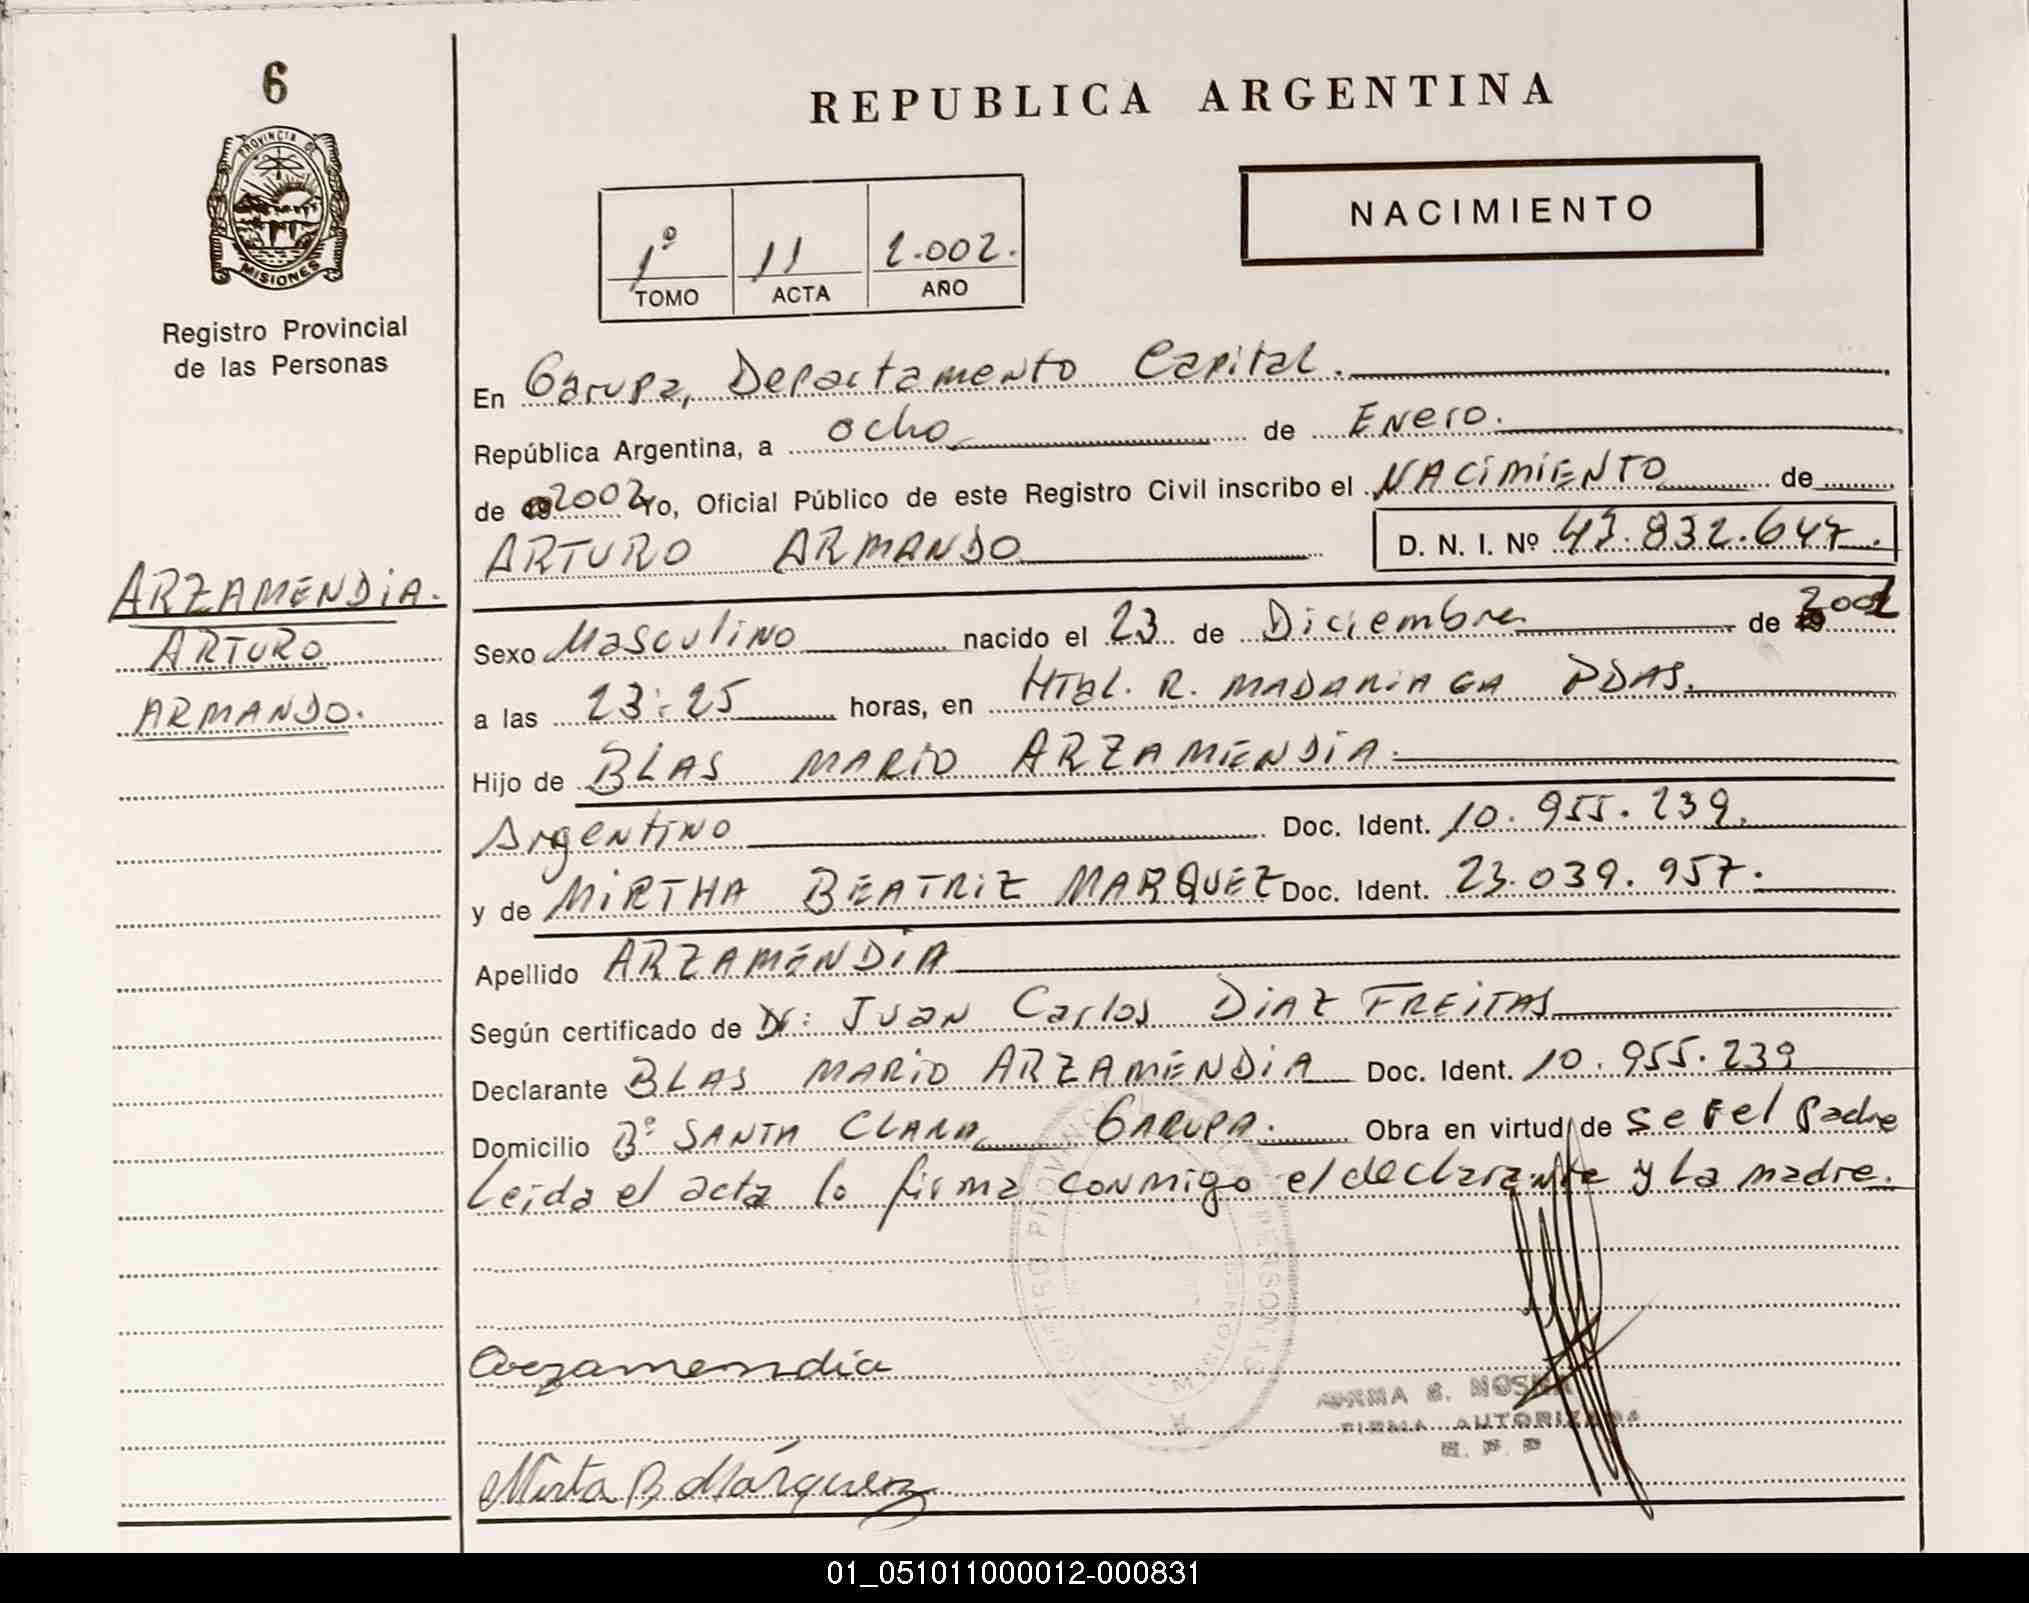 6
PROVINCIA DE
MISIONES
Registro Provincial
de las Personas
ARZAMENDIA.
ARTURO
ARMANDO.
REPUBLICA ARGENTINA
NACIMIENTO
1º 11 2.002.
TOMO ACTA AÑO
En Garupa, Departamento Capital.
República Argentina, a ocho de Enero.
de 2002 Yo, Oficial Público de este Registro Civil inscribo el NACIMIENTO de
ARTURO ARMANDO D. N. I. Nº 43.832.647.
Sexo Masculino nacido el 23 de Diciembre de
a las 23:25 horas, en Htal. R. MADARIAGA PDAS.
Hijo de BLAS MARIO ARZAMENDIA.
Argentino Doc. Ident. 10.955.239.
y de MIRTHA BEATRIZ MARQUEZ Doc. Ident. 23.039.957.
Apellido ARZAMENDIA
Según certificado de Dr: Juan Carlos DIAZ FREITAS
Declarante BLAS MARIO ARZAMENDIA Doc. Ident. 10.955.239
Domicilio Bº SANTA CLARA, GARUPA. Obra en virtud de ser el Padre
Leida el acta lo firma conmigo el declarante y La madre.
REGISTRO PROVINCIAL DE LAS PERSONAS
MISIONES
Arzamendia
FIRMA AUTORIZADA
Mirta B Márquez
01_051011000012-000831